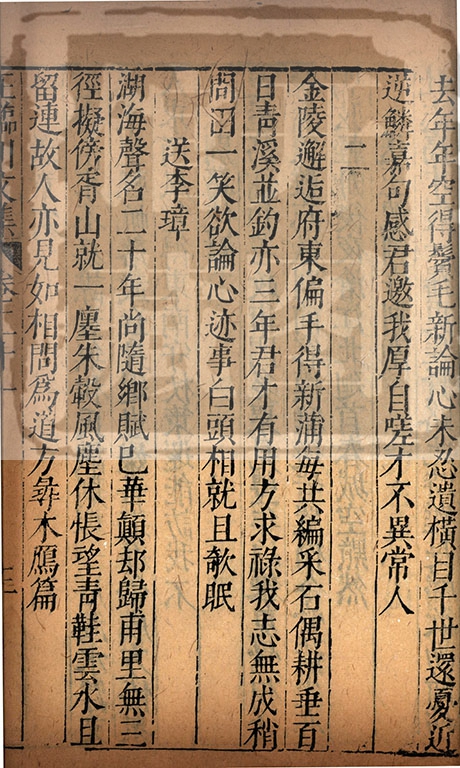 去年年空得鬢毛新論心未忍遺橫目千世還憂近
逆鱗嘉句感君邀我厚自嗟才不異常人
二
金陵邂逅府東偏手得新蒲每共編采石偶耕垂百
日青溪並釣亦三年君才有用方求祿我志無成稍
問田一笑欲論心迹事白頭相就且欹眠
送李璋
湖海聲名二十年尚隨鄉賦已華顛却歸甫里無三
徑擬傍胥山就一廛朱轂風塵休悵望青鞋雲水且
留連故人亦見如相問爲道方尋木鴈篇
王臨川文集 卷二十一 三